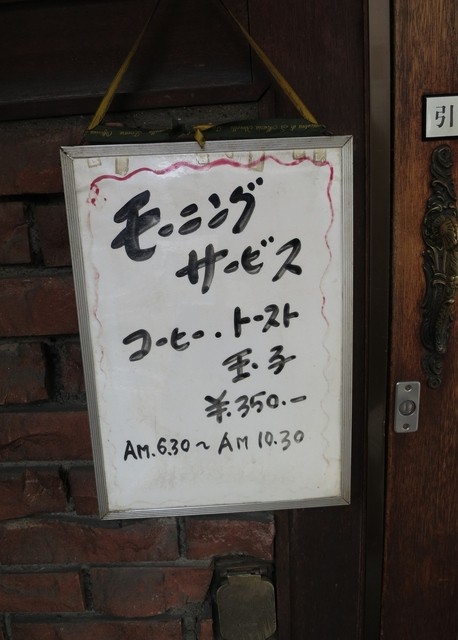 モーニング
サービス
コーヒー・トースト
玉・子
¥.350.-
AM.6.30〜AM10.30
引